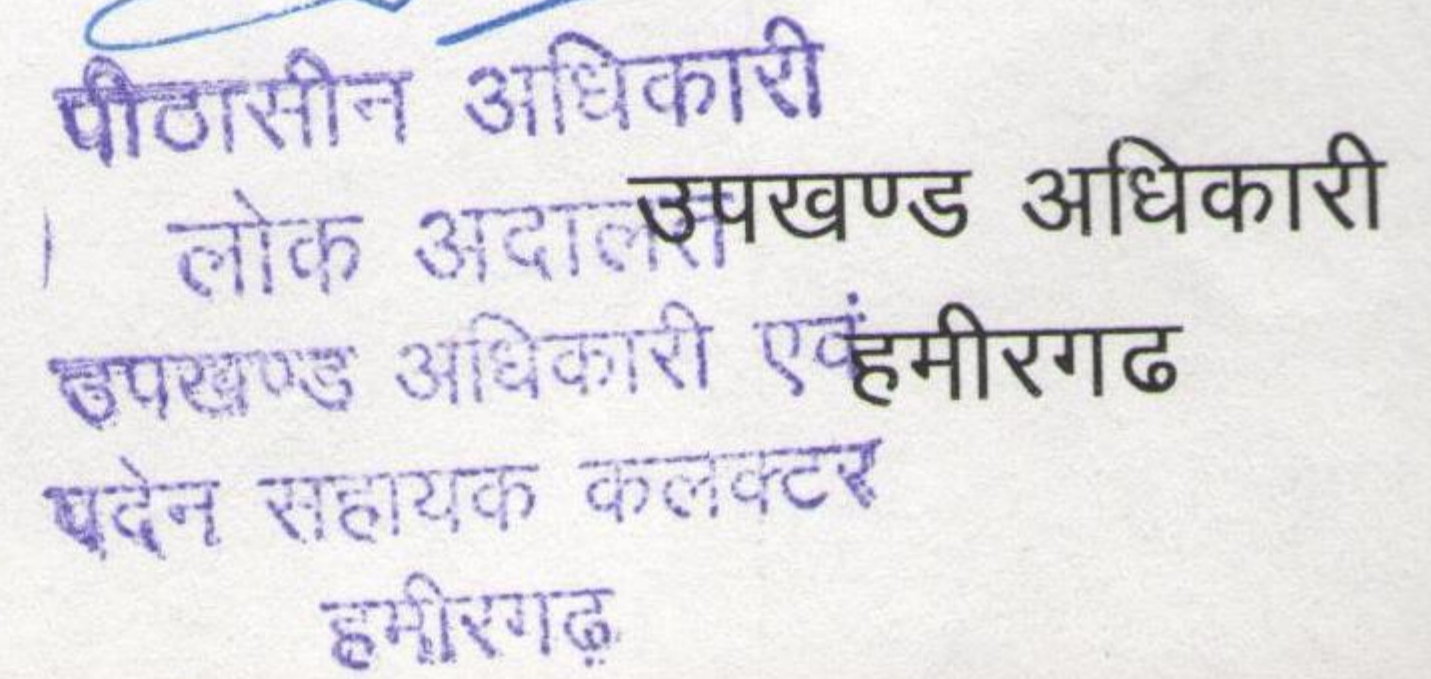 पीठासीन अधिकारी
लोक अदालत
उपखण्ड अधिकारी एवं
पदेन सहायक कलक्टर
हमीरगढ़
उपखण्ड अधिकारी
हमीरगढ